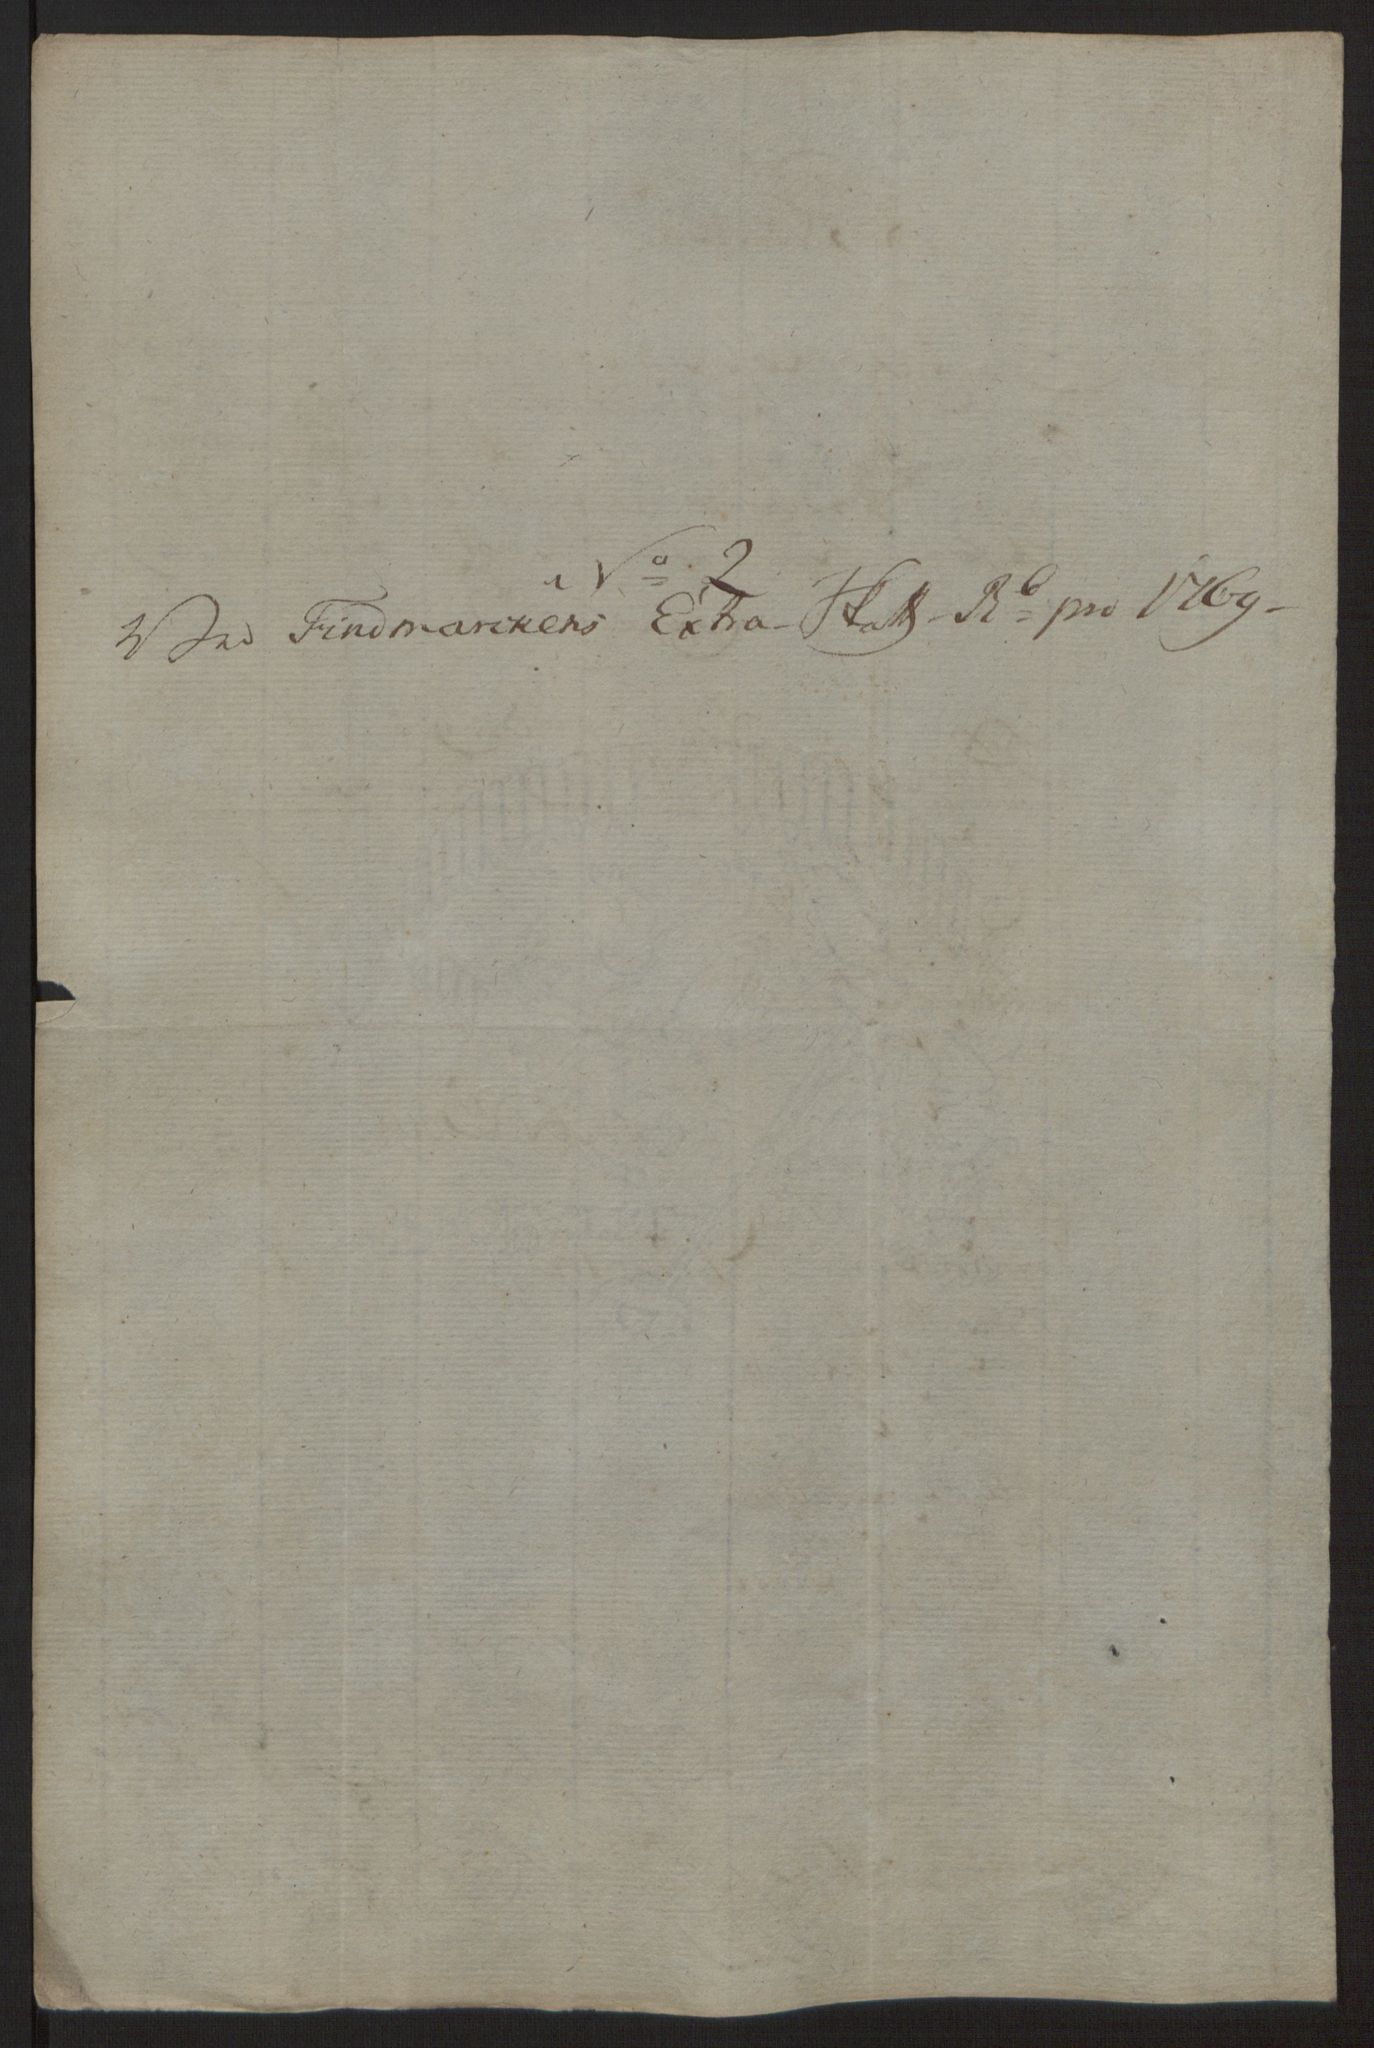 No 2
Ved Findmarckens Extra- Skatt- Rb pro 1769-